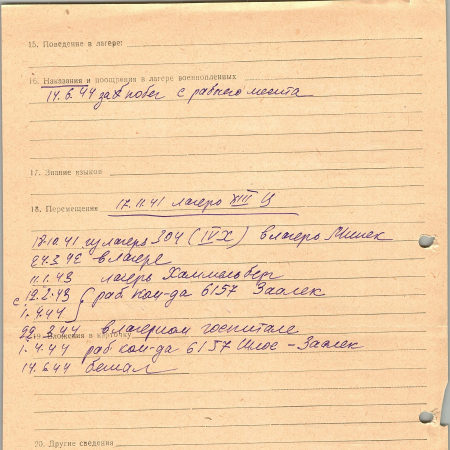 15. Поведение в лагере:
16. Наказания и поощрения в лагере военнопленных
14.6.44 за побег с рабочего места
17. Знание языков
18. Перемещение 17.11.41 лагерь XIII Ц
17.10.41 из лагеря 304 (IV X) в лагерь
24.3.42 в лагере
11.1.43 лагерь Хаммельберг
с 19.2.43 раб ком-да 6157 Заалек
1.4.44
22.2.44 в лагерном госпитале
19. Вложения в карточку
1.4.44 раб ком-да 6157 Заалек
14.6.44 бежал
20. Другие сведения